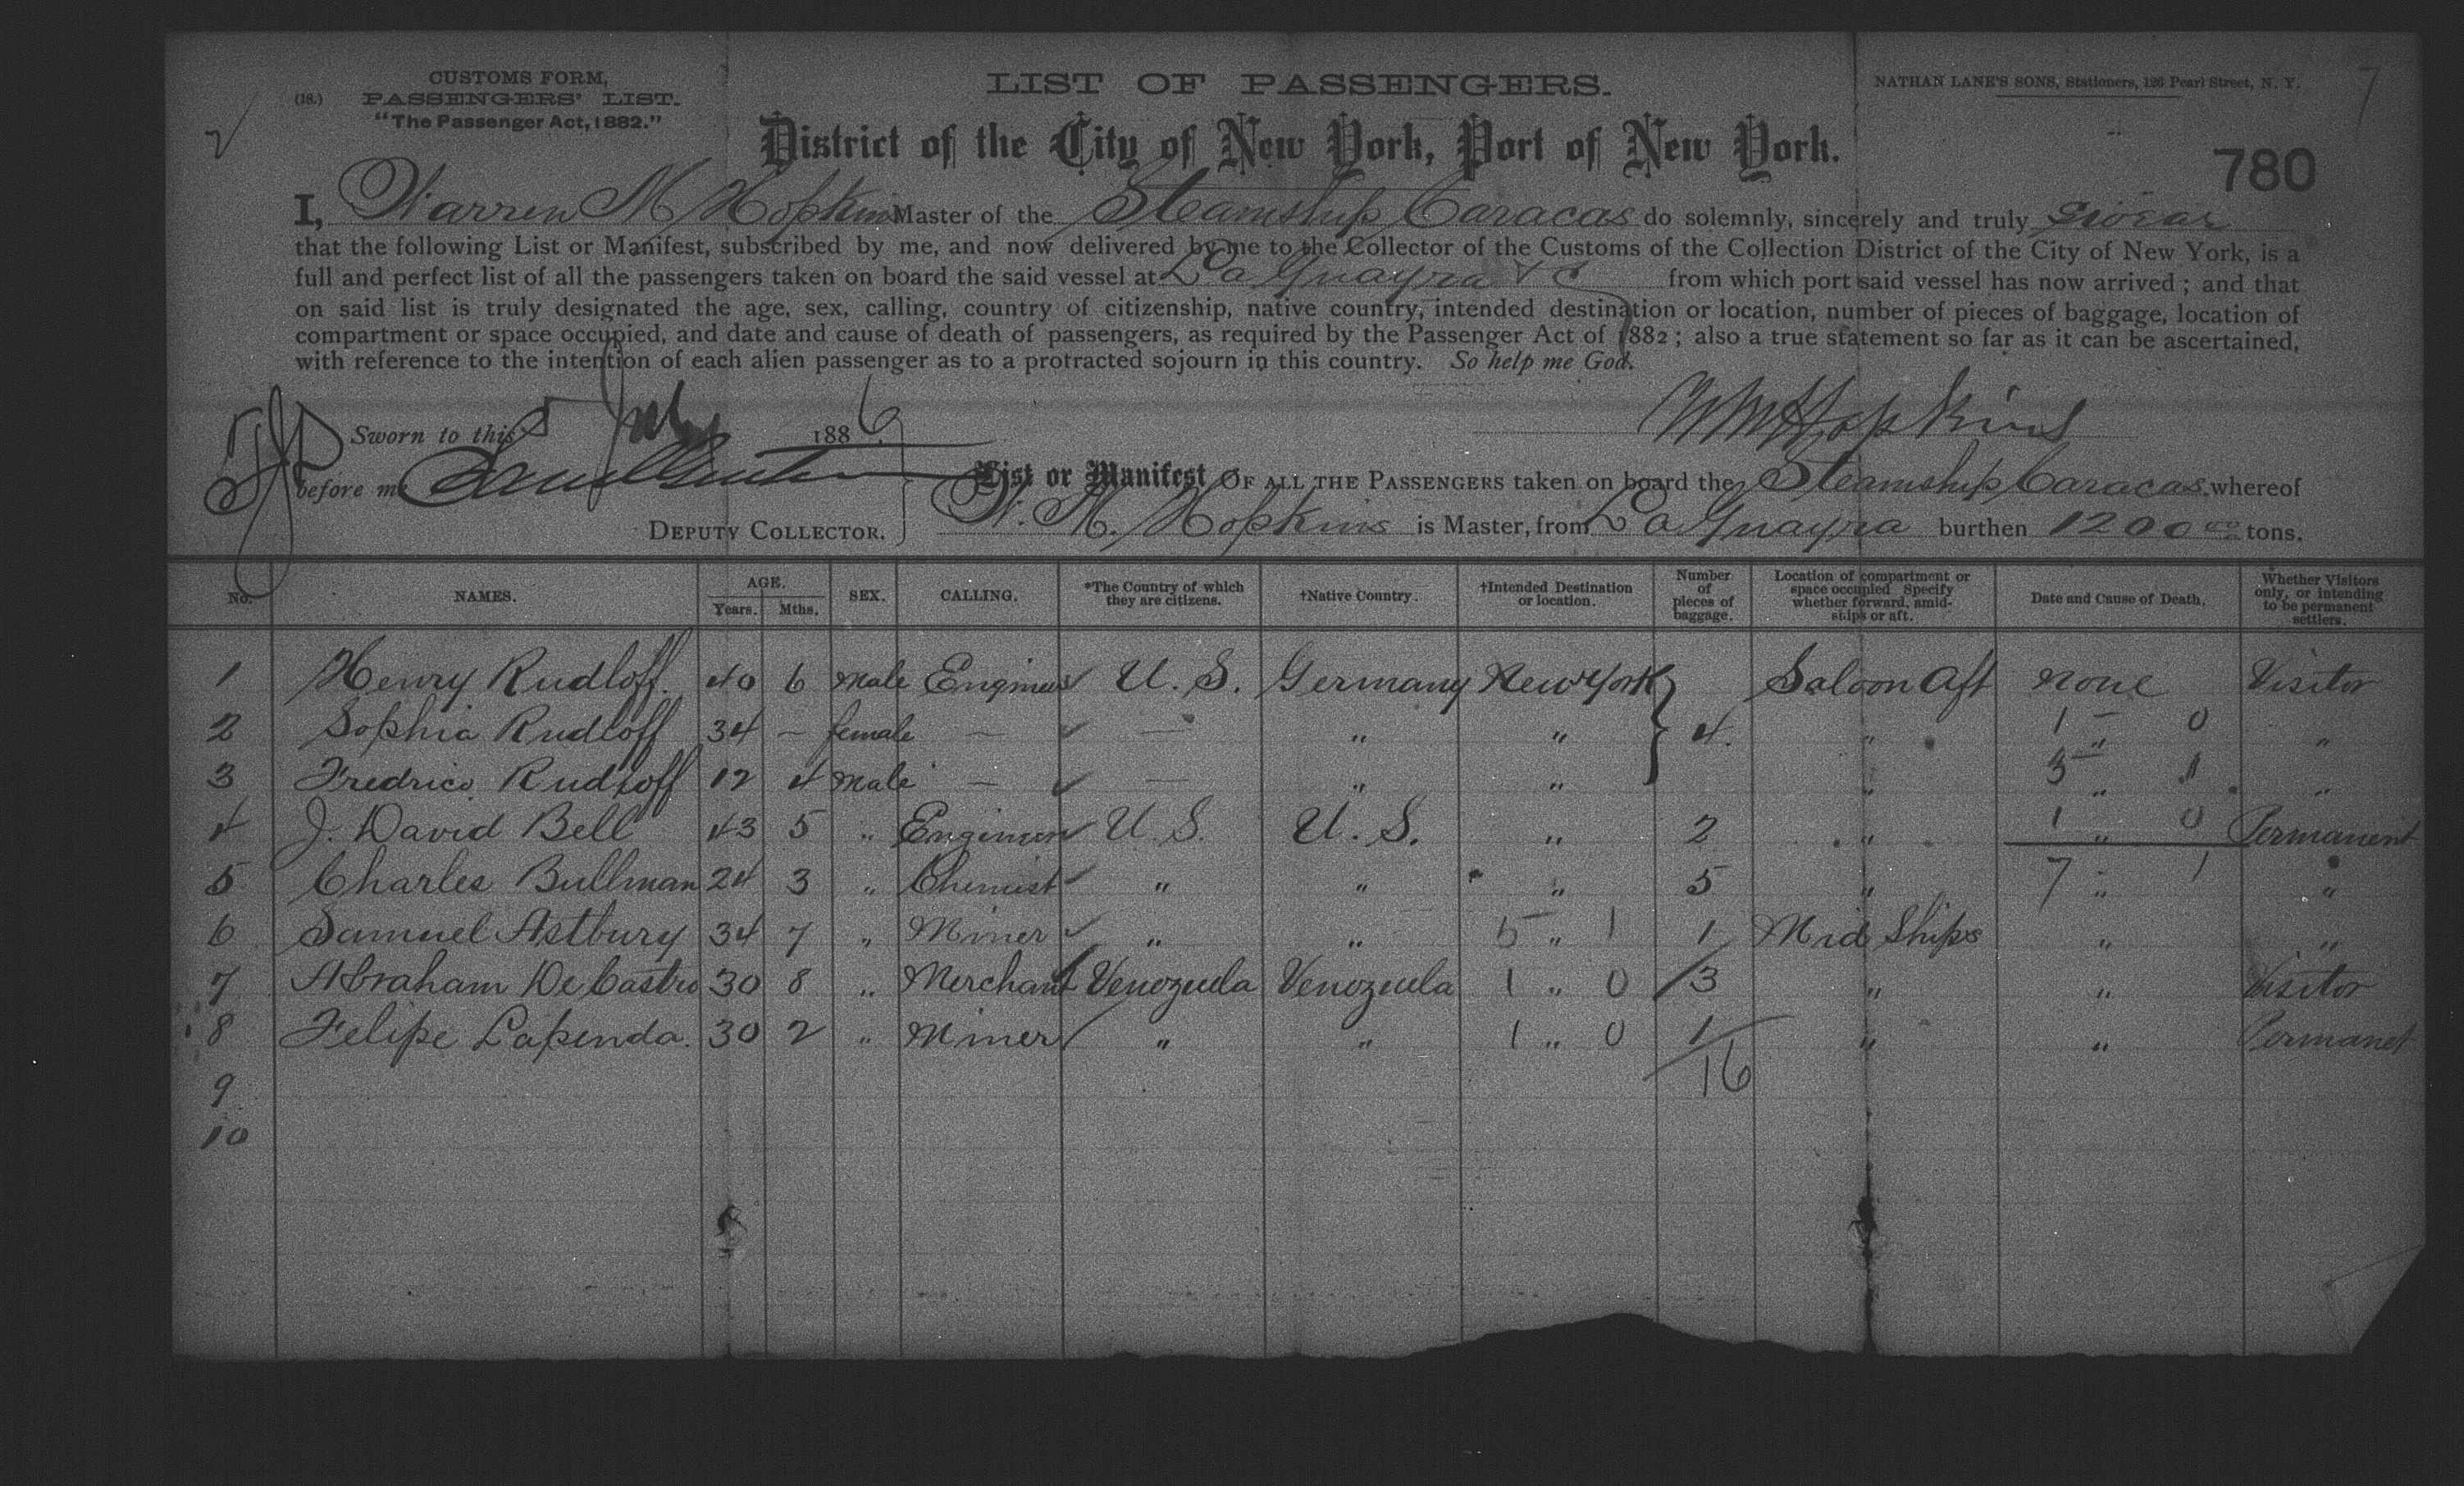 CUSTOMS FORM,
(18.) PASSENGERS' LIST.
"The Passenger Act, 1882."
LIST OF PASSENGERS.
NATHAN LANE'S SONS, Stationers, 126 Pearl Street, N. Y.
7
District of the City of New York, Port of New York.
780
I, Warren M Hopkins Master of the Steamship Caracas do solemnly, sincerely and truly Swear
that the following List or Manifest, subscribed by me, and now delivered by me to the Collector of the Customs of the Collection District of the City of New York, is a
full and perfect list of all the passengers taken on board the said vessel at La Guayra & C from which port said vessel has now arrived; and that
on said list is truly designated the age, sex, calling, country of citizenship, native country, intended destination or location, number of pieces of baggage, location of
compartment or space occupied, and date and cause of death of passengers, as required by the Passenger Act of 1882; also a true statement so far as it can be ascertained,
with reference to the intention of each alien passenger as to a protracted sojourn in this country. So help me God.
WM Hopkins
Sworn to this 5 July 1886
before me
DEPUTY COLLECTOR.
List or Manifest OF ALL THE PASSENGERS taken on board the Steamship Caracas whereof
W. M. Hopkins is Master, from La Guayra burthen 1200 00 tons.
No. NAMES. AGE. Years. Mths. SEX. CALLING. *The Country of which they are citizens. †Native Country. †Intended Destination or location. Number of pieces of baggage. Location of compartment or space occupied Specify whether forward, amidships or aft. Date and Cause of Death. Whether Visitors only, or intending to be permanent settlers.
1 Henry Rudloff. 40 6 Male Engineer U. S. Germany New York Saloon Aft none Visitor
2 Sophia Rudloff 34 — female — — " " 4. " 1 — " 0 "
3 Fredrico Rudloff 12 4 Male — — " " " 5 — " 1 "
4 J. David Bell 43 5 " Engineer U. S. U. S. " 2 " 1 " 0 Permanent
5 Charles Bullman 24 3 " Chemist " " " 5 " 7 " 1 "
6 Samuel Astbury 34 7 " Miner " " 5 " 1 1 Mid Ships " "
7 Abraham De Castro 30 8 " Merchant Venozuela Venozuela 1 " 0 3 " " Visitor
8 Felipe Lapenda. 30 2 " Miner " " 1 " 0 1 " " Permanet
9 16
10